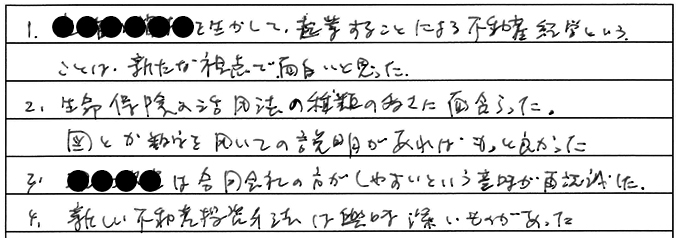 1. ●●●●●●を生かして、起業することによる不動産経営という
ことは、新たな視点で面白いと思った。
2. 生命保険の活用法の種類の多さに面食らった。
図とか数字を用いての説明があれば、もっと良かった
3. ●●●●は合同会社の方がしやすいという意味が再認識した。
4. 新しい不動産投資手法は興味深いものがあった